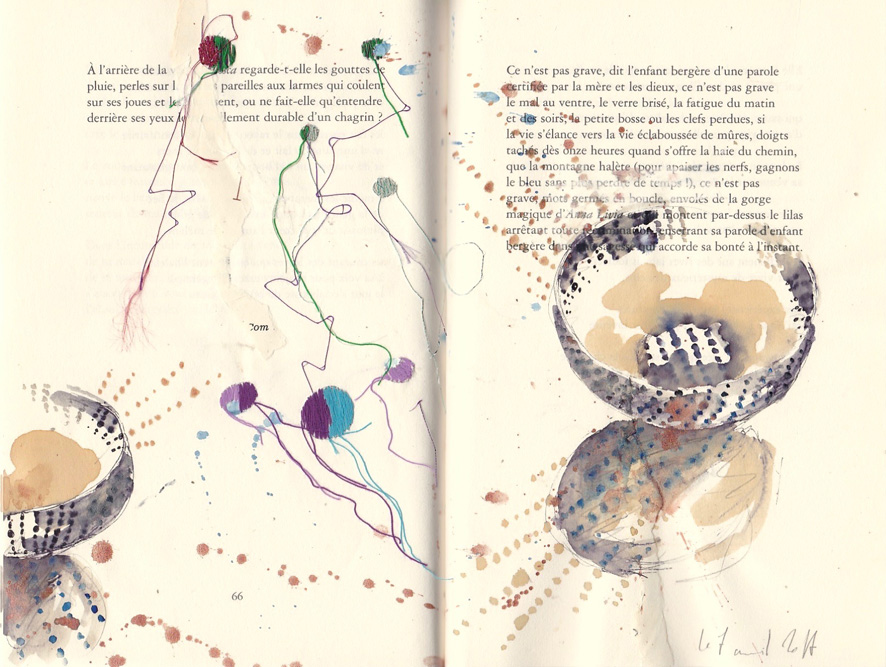 À l'arrière de la regarde-t-elle les gouttes de
pluie, perles sur pareilles aux larmes qui coulent
sur ses joues et ou ne fait-elle qu'entendre
derrière ses yeux durable d'un chagrin ?
com
66
Ce n'est pas grave, dit l'enfant bergère d'une parole
certifiée par la mère et les dieux, ce n'est pas grave
le mal au ventre, le verre brisé, la fatigue du matin
et des soirs, la petite bosse ou les clefs perdues, si
la vie s'élance vers la vie éclaboussée de mûres, doigts
tachés dès onze heures quand s'offre la haie du chemin,
quo la montagne halète (pour apaiser les nerfs, gagnons
le bleu sans plus perdre de temps !), ce n'est pas
grave, mots germés en boucle, envolés de la gorge
magique d'Anna Livia montent par-dessus le lilas
arrêtant toute sa parole d'enfant
bergère dans qui accorde sa bonté à l'instant.
le 7